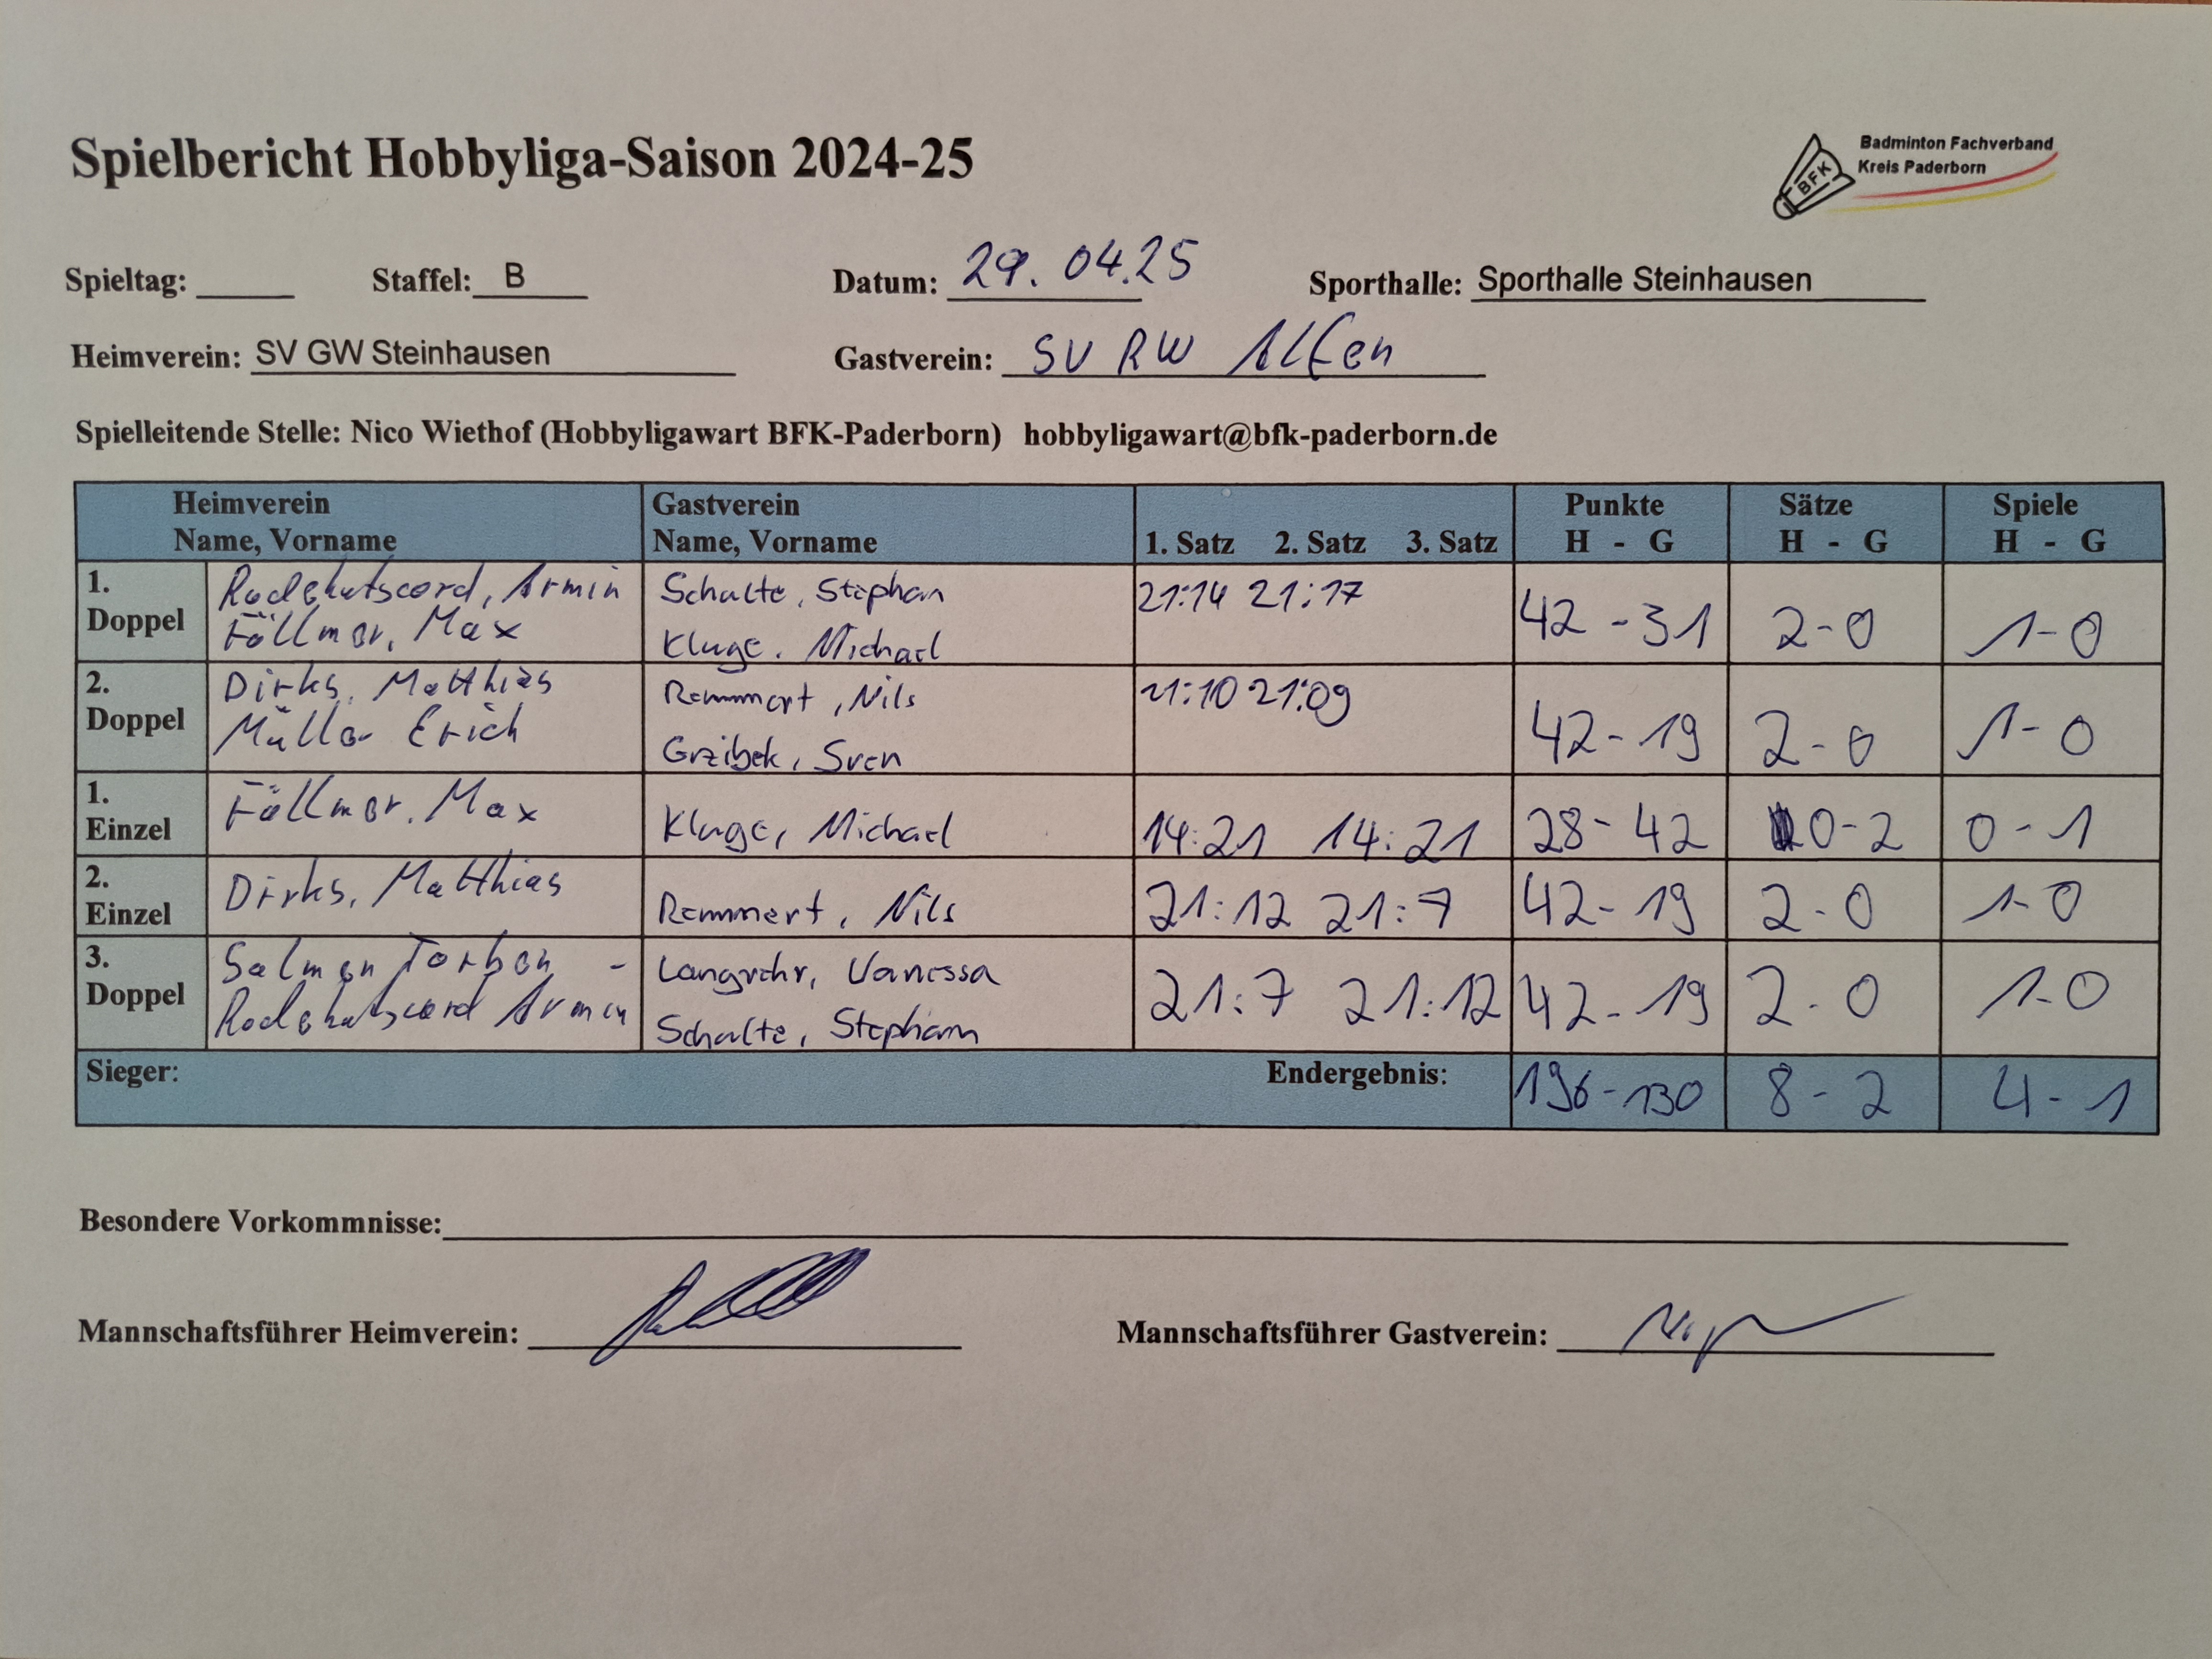 Spielbericht Hobbyliga-Saison 2024-25
BFK
Badminton Fachverband
Kreis Paderborn
Spieltag: Staffel: B Datum: 29.04.25 Sporthalle: Sporthalle Steinhausen
Heimverein: SV GW Steinhausen Gastverein: SV RW Alfen
Spielleitende Stelle: Nico Wiethof (Hobbyligawart BFK-Paderborn) hobbyligawart@bfk-paderborn.de
Heimverein Gastverein Punkte Sätze Spiele
Name, Vorname Name, Vorname 1. Satz 2. Satz 3. Satz H - G H - G H - G
1. Doppel Radehutscord, Armin Schulte, Stephan 21:14 21:17 42-31 2-0 1-0
Föllmer, Max Kluge, Michael
2. Doppel Dirks, Matthias Remmert, Nils 21:10 21:09 42-19 2-0 1-0
Müller Erich Grzibek, Sven
1. Einzel Föllmer, Max Kluge, Michael 14:21 14:21 28-42 0-2 0-1
2. Einzel Dirks, Matthias Remmert, Nils 21:12 21:7 42-19 2-0 1-0
3. Doppel Salmen Torben - Langrehr, Vanessa 21:7 21:12 42-19 2-0 1-0
Radehutscord Armin Schulte, Stephan
Sieger: Endergebnis: 196-130 8-2 4-1
Besondere Vorkommnisse:
Mannschaftsführer Heimverein: Mannschaftsführer Gastverein: